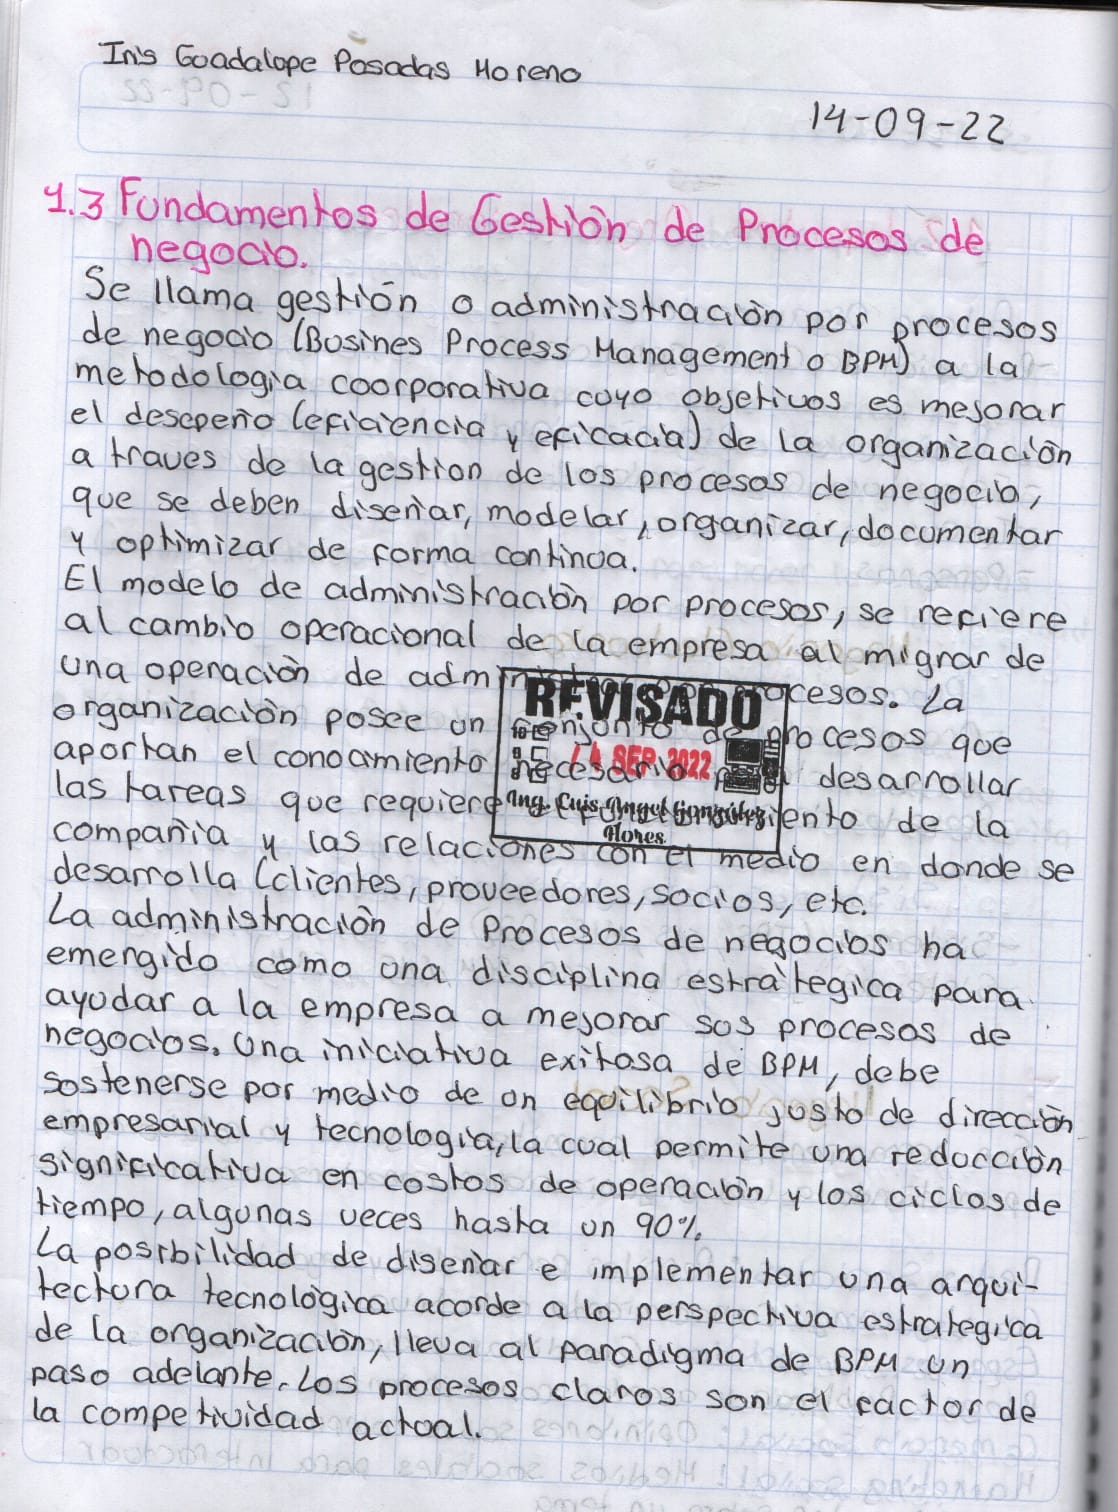 Iris Guadalupe Posadas Moreno
14-09-22
1.3 Fundamentos de Gestión de Procesos de
negocio.
Se llama gestión o administración por procesos
de negocio (Busines Process Management o BPM) a la
metodologia coorporativa cuyo objetivos es mejorar
el desepeño (eficiencia y eficacia) de la organización
a traves de la gestion de los procesos de negocio,
que se deben diseñar, modelar, organizar, documentar
y optimizar de forma continua.
El modelo de administración por procesos, se refiere
al cambio operacional de la empresa al migrar de
una operación de procesos. La
organización posee un conjunto de procesos que
aportan el conocimiento necesario desarrollar
las tareas que requiere de la
compañia y las relaciones con el medio en donde se
desarrolla (clientes, proveedores, socios, etc.
La administración de Procesos de negocios ha
emergido como una disciplina estrategica para
ayudar a la empresa a mejorar sus procesos de
negocios. Una iniciativa exitosa de BPM, debe
sostenerse por medio de un equilibrio justo de dirección
empresarial y tecnologia, la cual permite una reducción
significativa en costos de operación y los ciclos de
tiempo, algunas veces hasta un 90%.
La posibilidad de diseñar e implementar una arqui-
tectura tecnológica acorde a la perspectiva estrategica
de la organización, lleva al paradigma de BPM un
paso adelante. Los procesos claros son el factor de
la competividad actual.
REVISADO
14 SEP 2022
Ing. Luis Angel González
Flores